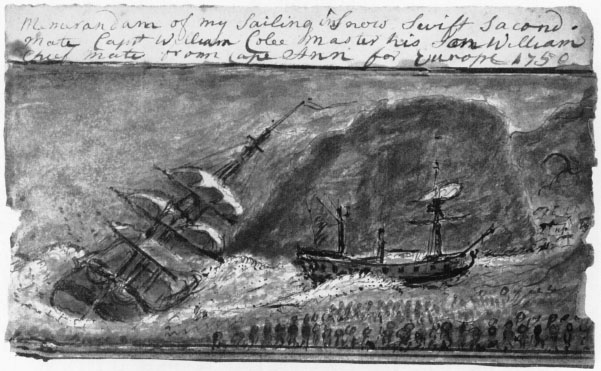 Memorandam of my Sailing in Snow Swift Sacond
mate Capt William Colee master his Son William
Chief mate From Cape Ann for Europe 1756